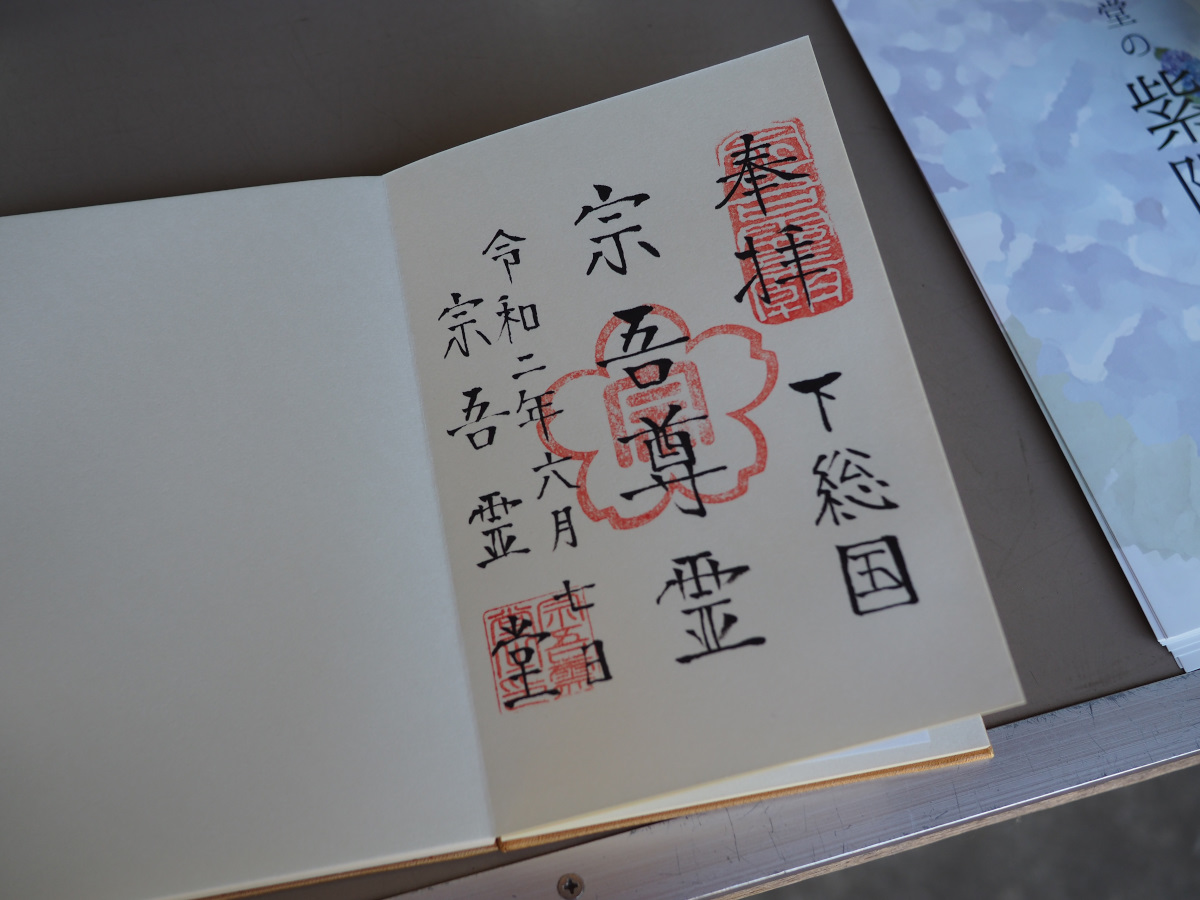 奉拝
下総国
宗吾尊霊
令和二年六月七日
宗吾霊堂
堂の
紫陽